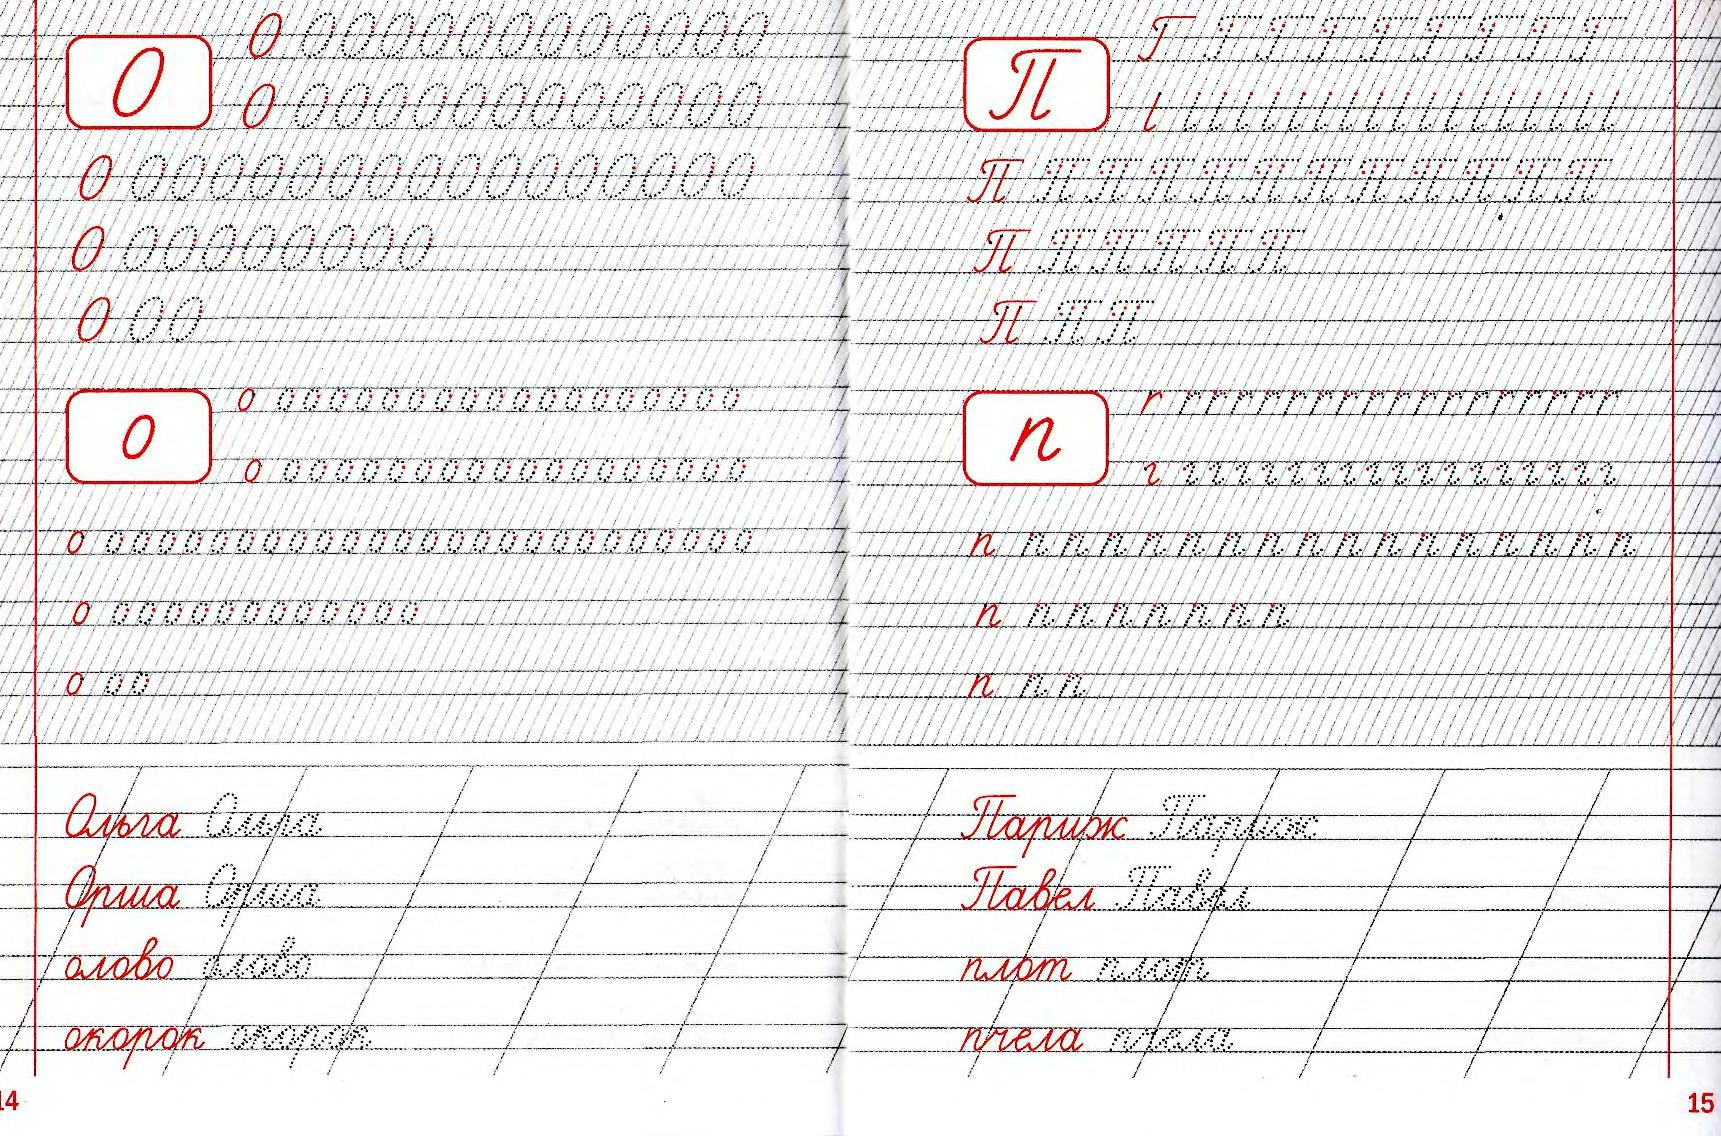 О О ООООООООООООО
О ООООООООООООО
О ООООООООООООООООО
О ООООООООО
О ОО
о о оооооооооооооооооо
о оооооооооооооооооо
о ооооооооооооооооооооооооо
о оооооооооооо
о оо
Ольга Ольга
Орша Орша
олово олово
окорок окорок
14
П
П ППППППППППП
П ППППП
П ПП
п
п пппппппппппппппп
п ппппппп
п пп
Париж Париж
Павел Павел
плот плот
пчела пчела
15